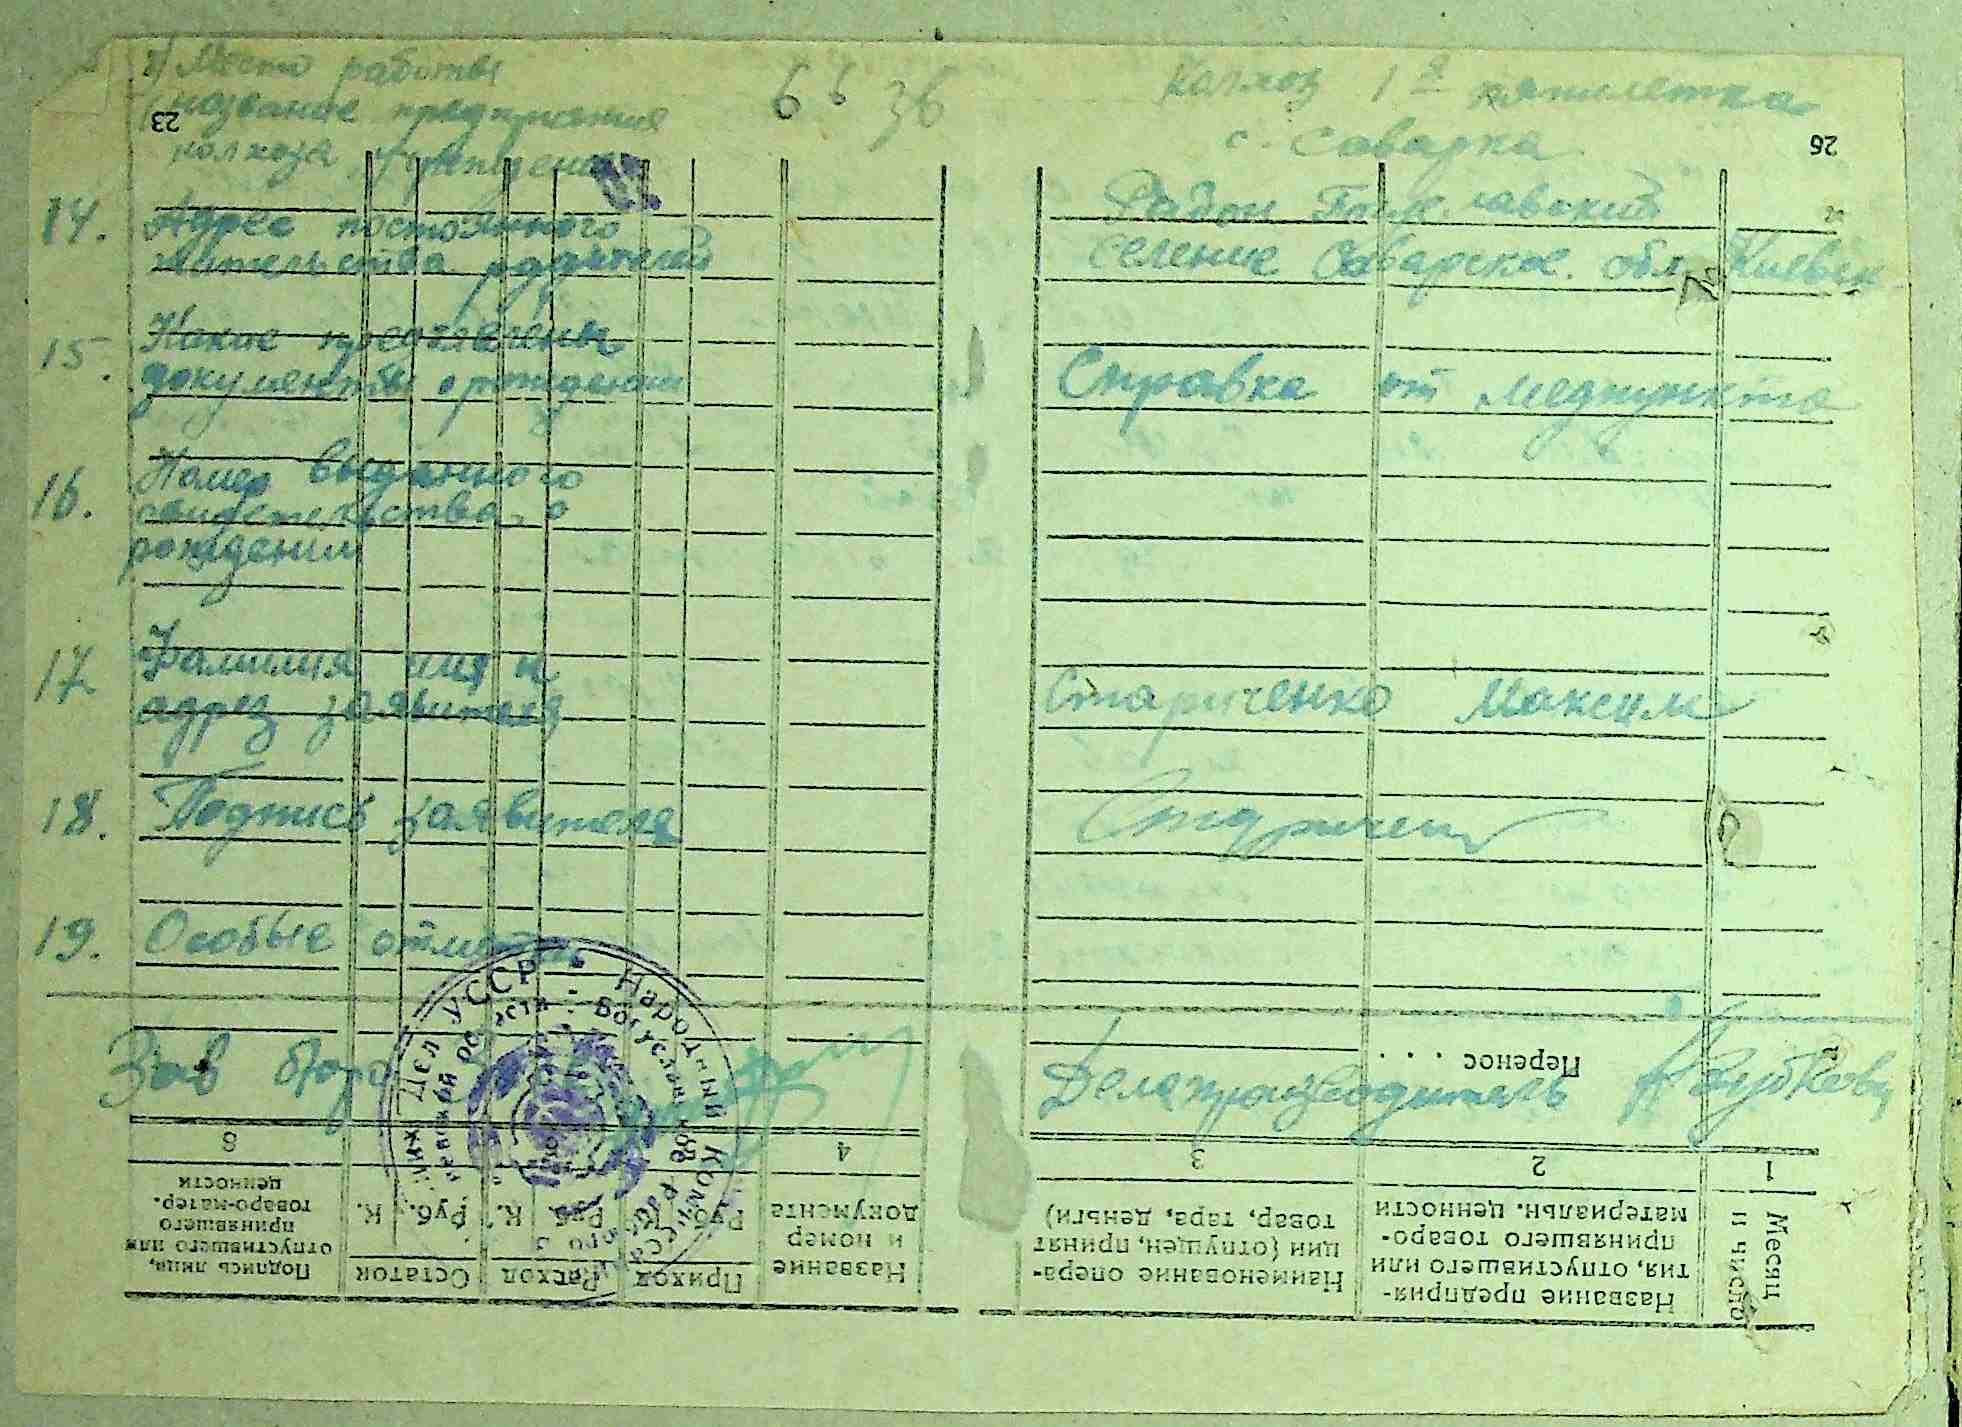 в) Место работы
название предприятия
колхоза, учреждения
Колхоз 1я пятилетка
с. Саварка
23
26
14. Адрес постоянного
жительства родителей
Район
селение Саварское обл. Киевск
15. Какие предъявлены
документы о рождении
Справка от медпункта
16. Номер выданного
свидетельства о
рождении
17. Фамилия имя и
адрез заявителя
Стариченко Максим
18. Подпись заявителя
19. Особые отметки
Зав бюро
Делапроизводитель
Перенос . . . .
УССР Народный Комисса
Месяц и число
Название предприя-
тия, отпустившего или
принявшего товаро-
материальн. ценности
Наименование опера-
ции (отпущен, принят
товар, тара, деньги)
Название
и номер
документа
Приход
Руб. К.
Расход
Руб. К.
Остаток
Руб. К.
Подпись лица,
отпустившего или
принявшего
товаро-матер.
ценности
1 2 3 4 8